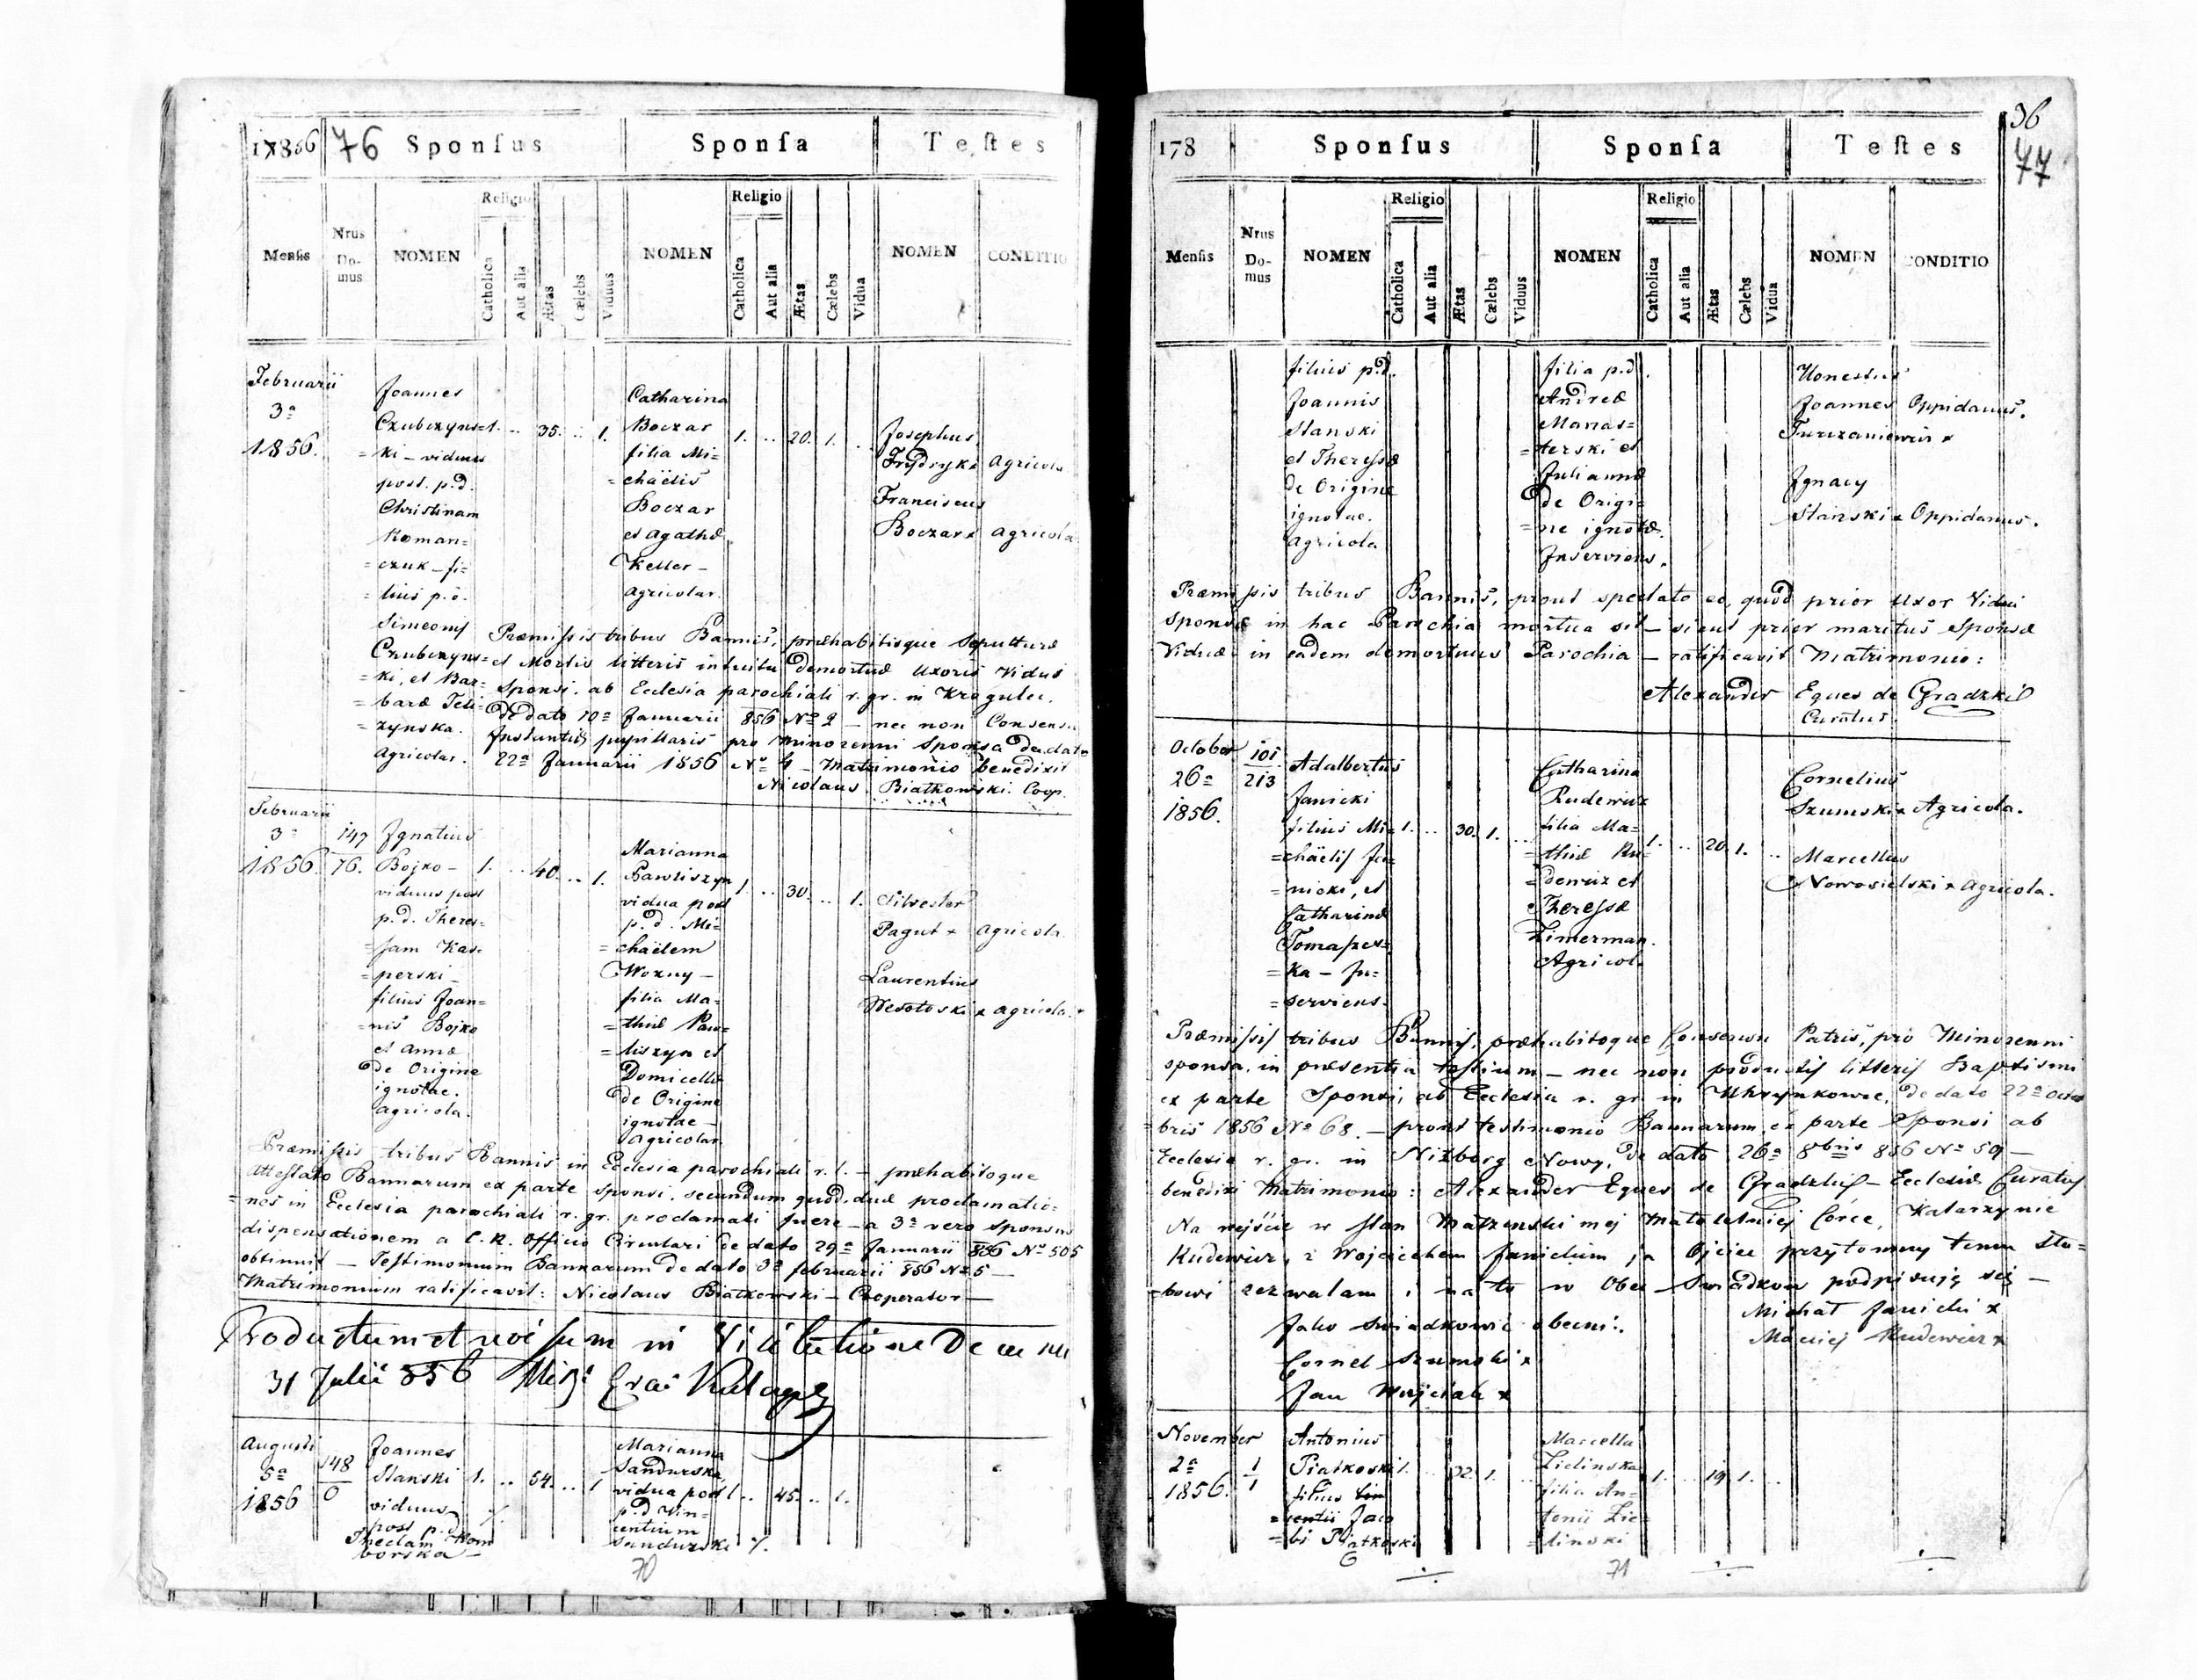 1856 76 Sponsus Sponsa Testes
Mensis
Nrus Domus
NOMEN
Religio
Catholica
Aut alia
Ætas
Cælebs
Viduus
NOMEN
Religio
Catholica
Aut alia
Ætas
Cælebs
Vidua
NOMEN
CONDITIO
Februarii
3a
1856.
Joannes
Czubczyns=
=ki – viduus
post. p.d.
Christinam
Roman=
=czuk – fi=
=lius p.d.
Simeonis
Czubczyns=
=ki, et Bar=
=baræ Teli=
=zynska.
Agricolar.
1. .. 35. .. 1.
Catharina
Boczar
filia Mi=
=chäelis
Boczar
et Agathæ
Keller –
Agricolar.
1. .. 20. 1. ..
Josephus
Frydryk x Agricola
Franciscus
Boczar x Agricola
Præmissis tribus Bannis, præhabitisque Sepulturæ
et Mortis litteris intuitu demortuæ Uxoris Vidui
Sponsi. ab Ecclesia parochiali r. gr. in Kragulec,
de dato 10a Januarii 856 No 2 – nec non Consensu
Instantiis pupillaris pro Minorenni Sponsa de dato
22a Januarii 1856 No 4 – Matrimonio benedixit
Nicolaus Białkowski. Coop.
Februarii
3a
1856.
147
76.
Ignatius
Bojko –
viduus post
p.d. There=
=sam Kas=
=perski –
filius Joan=
=nis Bojko
et Annæ
de Origine
ignotae.
Agricola.
1. .. 40. .. 1.
Marianna
Pawliszyn
vidua post
p.d. Mi=
=chäelem
Wozny –
filia Ma=
=thiæ Paw=
=liszyn et
Domicellæ
de Origine
ignotae –
Agricolar.
1. .. 30. .. 1.
Silvester
Pagut x Agricola
Laurentius
Wesołoski x Agricola.
Præmissis tribus Bannis in Ecclesia parochiali r. l. – præhabitoque
Attestato Bannarum ex parte sponsi. secundum quod. duæ proclamatio=
=nes in Ecclesia parochiali r. gr. proclamati fuere – a 3a vero Sponsus
dispensationem a C.R. Officio Circulari de dato 29a Januarii 856 No 505
obtinuit – Testimonium Bannarum de dato 3a februarii 856 No 5 –
Matrimonium ratificavit: Nicolaus Białkowski – Cooperator –
Productum et visum in Visitatione
31 Julii 856
Augusti
5a
1856
148
6
Joannes
Slanski
viduus
post p.d
Theclam Kom
borska –
1. .. 54. .. 1
Marianna
Sandurska,
vidua post
p.d Vin=
centium
Sandurski ./.
1 .. 45. .. 1.
70
36
77
178 Sponsus Sponsa Testes
Mensis
Nrus Domus
NOMEN
Religio
Catholica
Aut alia
Ætas
Cælebs
Viduus
NOMEN
Religio
Catholica
Aut alia
Ætas
Cælebs
Vidua
NOMEN
CONDITIO
filius p.d.
Joannis
Slanski
et Theressæ
de Origine
ignotae.
Agricola
filia p.d.
Andreæ
Manas=
=terski et
Juliannæ
de Origi=
=ne ignotæ.
Inserviens.
Honestus
Joannes Oppidanus.
Turczaniewicz x
Ignacy
Slanski x Oppidanus.
Præmissis tribus Bannis, prout spectato eo, quod prior Uxor Vidui
Sponsi in hac Parochia mortua sit – sicut prior maritus Sponsæ
Viduæ in eadem demortuus Parochia – ratificavit Matrimonio:
Alexander Eques de Gradzki
Curatus.
October
26a
1856.
101
213
Adalbertus
Janicki
filius Mi=
=chäelis Ja=
=nicki, et
Catharinæ
Tomaszes=
=ka – In=
=serviens.
1. .. 30. 1. ..
Catharina
Rudewicz
filia Ma=
=thiæ Ru=
=dewicz et
Theressæ
Zimerman.
Agricol.
1. .. 20. 1. ..
Cornelius
Szumski x Agricola.
Marcellus
Nowosielski x Agricola.
Præmissis tribus Bannis, præhabitoque Consensu Patris, pro Minorenni
sponsa. in præsentia testium – nec non productis litteris Baptismi
ex parte Sponsi, ab Ecclesia r. gr. in Uhrynkowce, de dato 22a Octo
bris 1856 No 68. – prout testimonio Bannarum ex parte Sponsi ab
Ecclesia r. gr. in Nizborg Nowy, de dato 26a 8bris 856 No 59 –
benedixi Matrimonio: Alexander Eques de Gradzki – Ecclesiæ Curatus
Na wejście w stan Małzenski mej Małoletniej Córce, Katarzynie
Rudewicz, z Wojciechem Janickim ja Ojciec przytomny temu Slu=
=bowi zezwalam i na to w Obec Swiadkow podpisuję się –
Michał Janicki x
Maciej Rudewicz x
Jako swiadkowie obecni:
Cornel Szumski x
Jan Wojciak x
November
2a
1856.
1
1
Antonius
Piatkoski
filius Vin
=centii Jaco
=bi Piatkoski
1. .. 22. 1. ..
Marcella
Zielinska
filia An=
tonii Zie=
=linski
1. .. 19. 1. ..
71